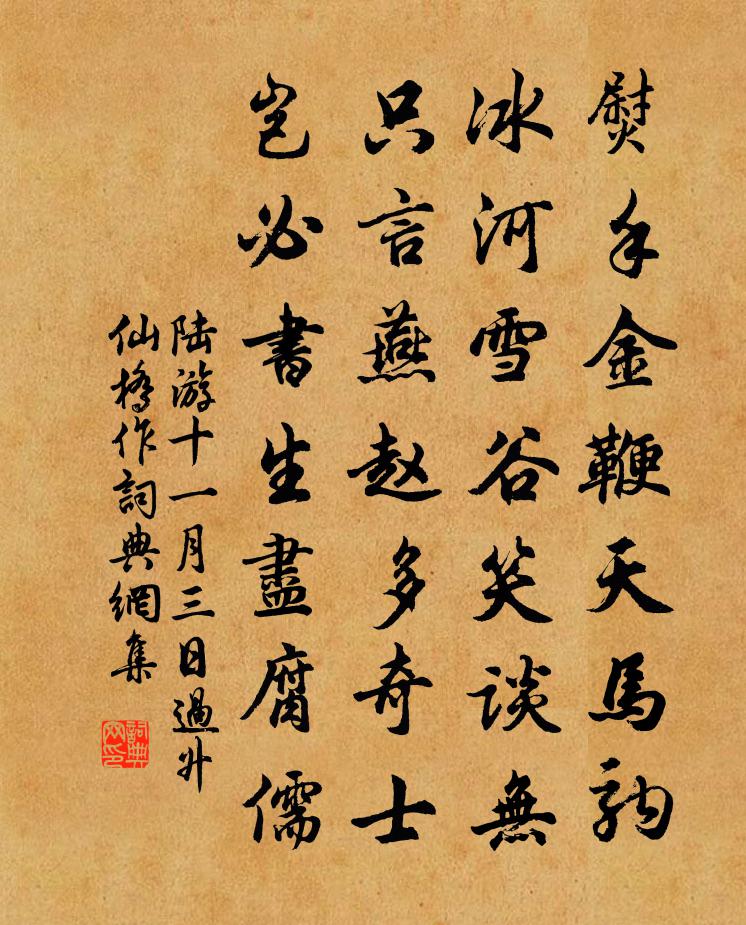 熨手金鞭天馬駒
冰河雪谷笑談無
只言燕赵多奇士
岂必書生盡腐儒
陆游十一月三日過升
仙橋作詞典網集
詞典
网印